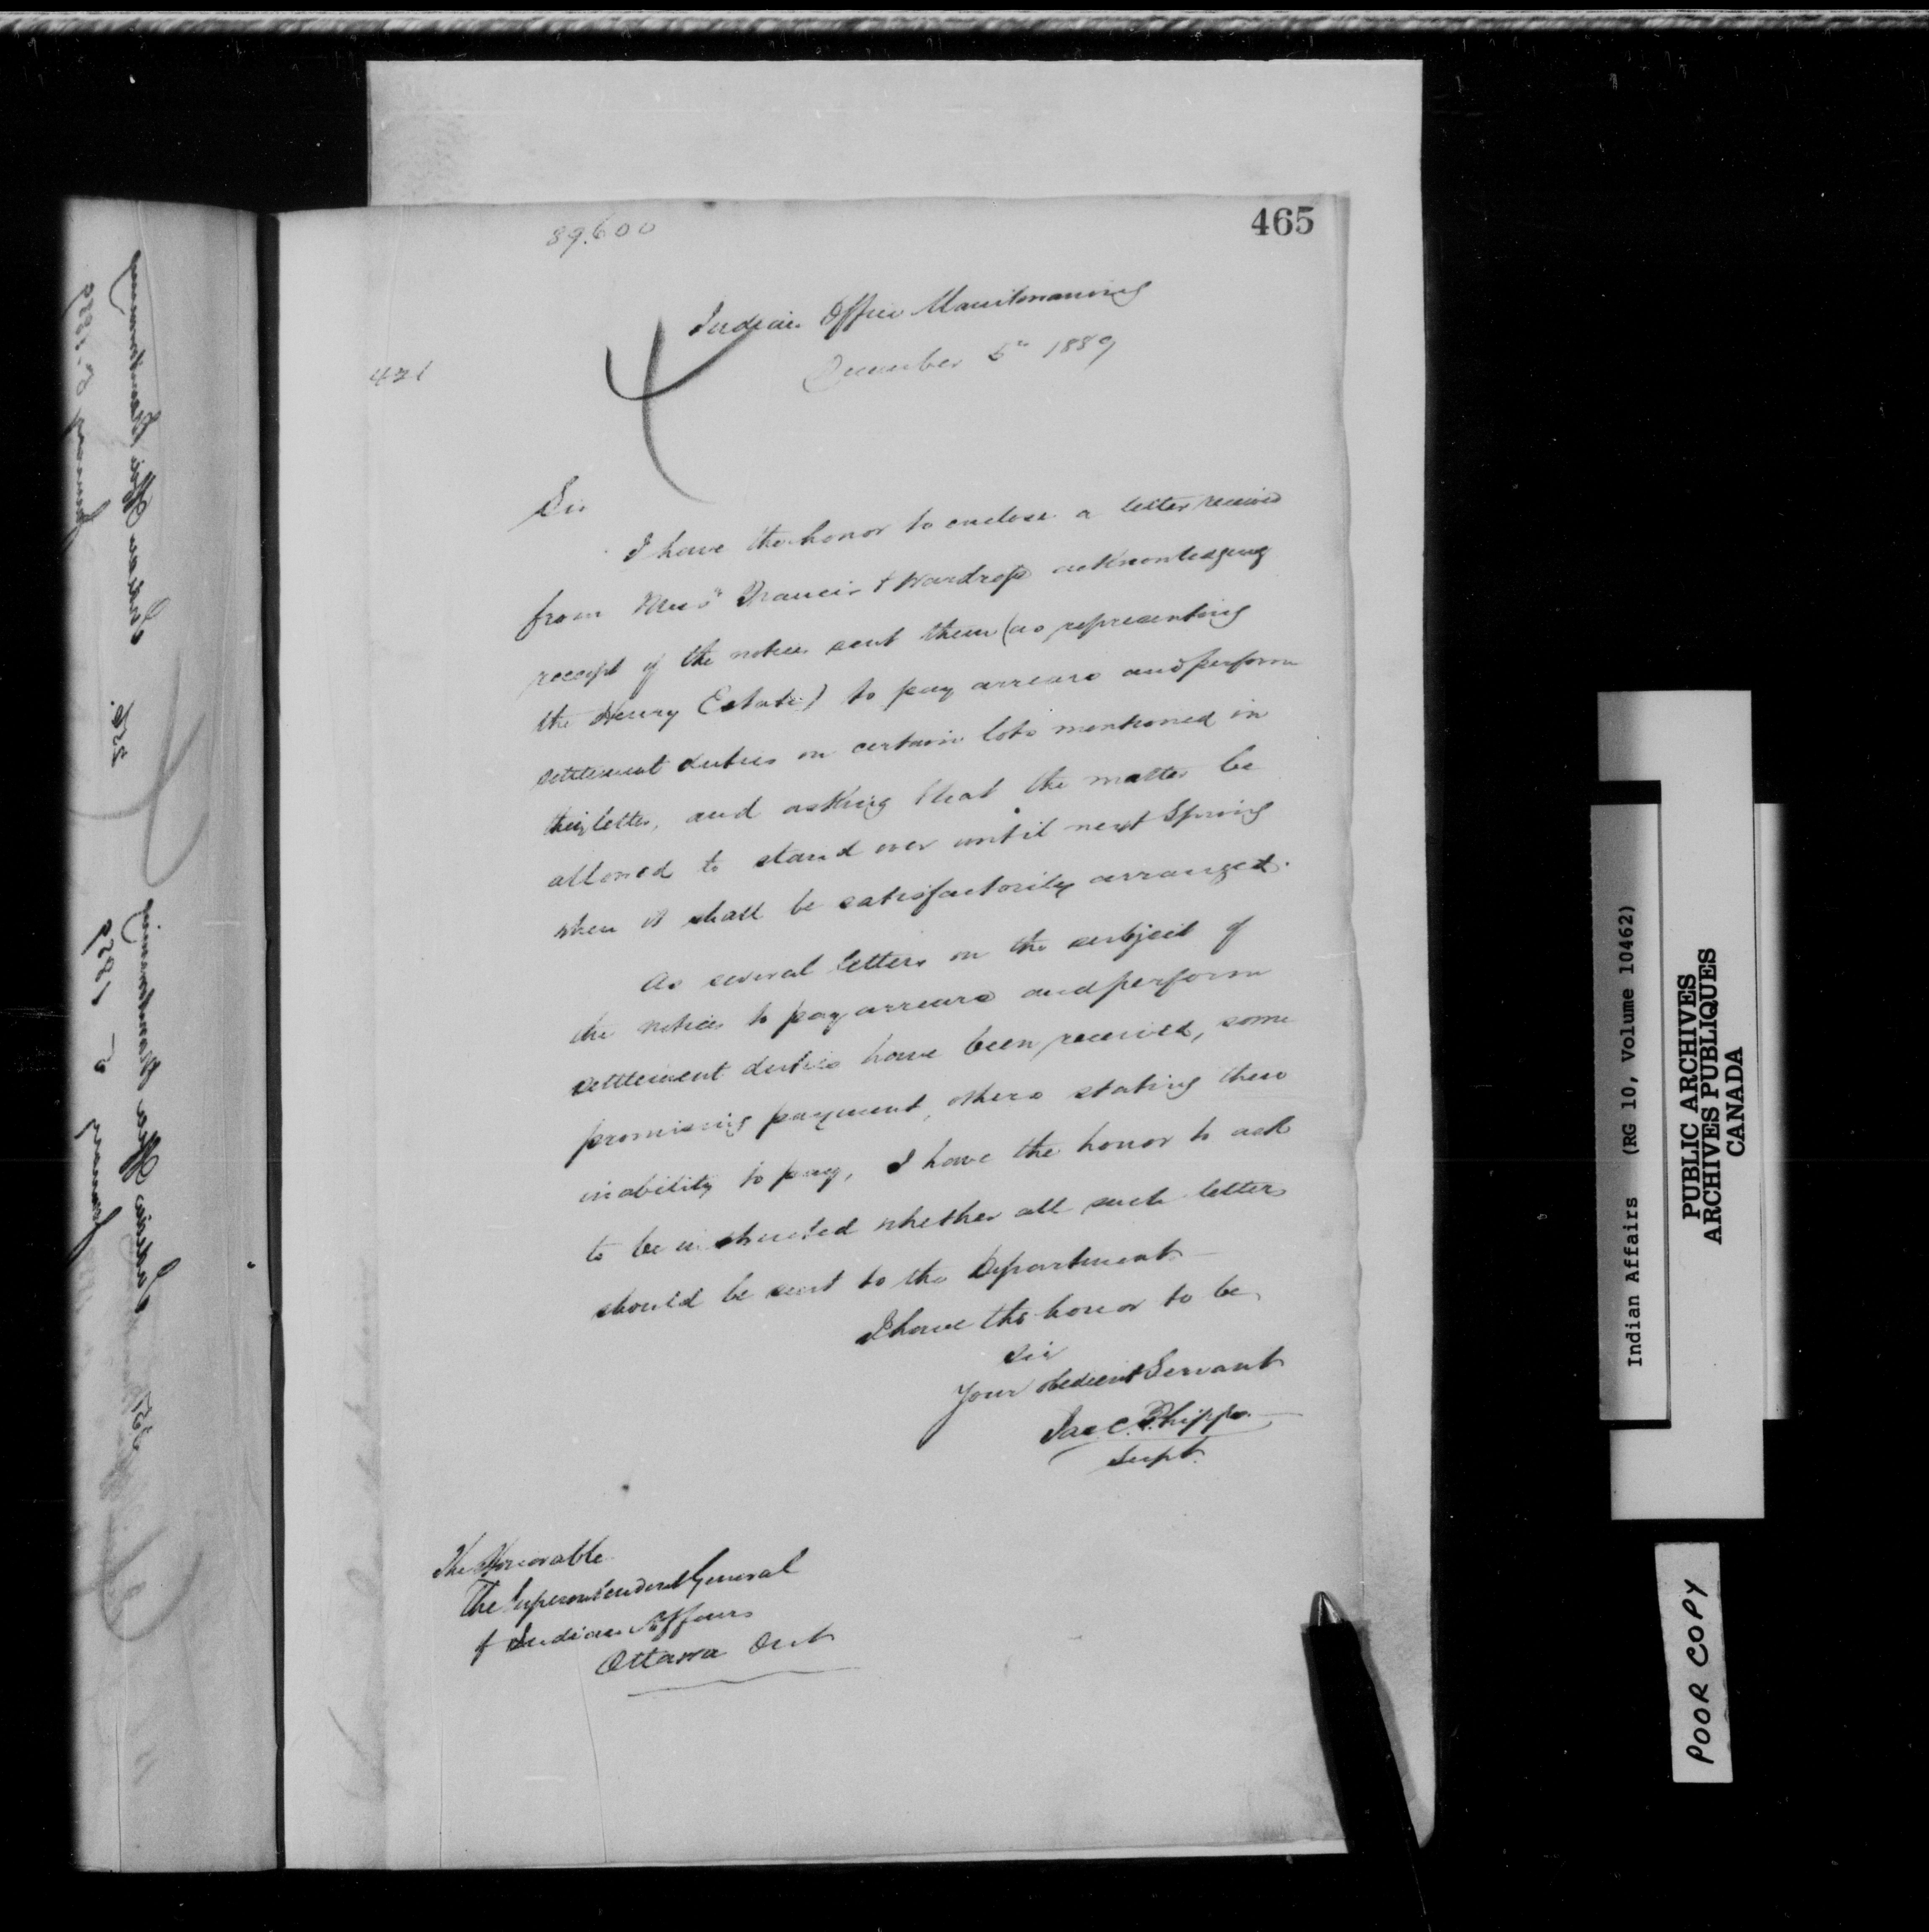 465
89.600
Indian Office Manitowaning
December 5th 1889
421
Sir
I have the honor to enclose a letter received
from Messrs Francis & Wardrope acknowledging
receipt of the notices sent them (as representing
the Henry Estate) to pay arrears and perform
settlement duties on certain lots mentioned in
their letter, and asking that the matter be
allowed to stand over until next Spring
when it shall be satisfactorily arranged.
As several letters on the subject of
the notices to pay arrears and perform
settlement duties have been received, some
promising payment, others stating their
inability to pay, I have the honor to ask
to be instructed whether all such letters
should be sent to the Department
I have the honor to be
Sir
Your obedient Servant
Jas. C. Phipps
Supt.
The Honorable
The Superintendent General
of Indian Affairs
Ottawa Ont
Indian Affairs (RG 10, Volume 10462)
PUBLIC ARCHIVES
ARCHIVES PUBLIQUES
CANADA
POOR COPY